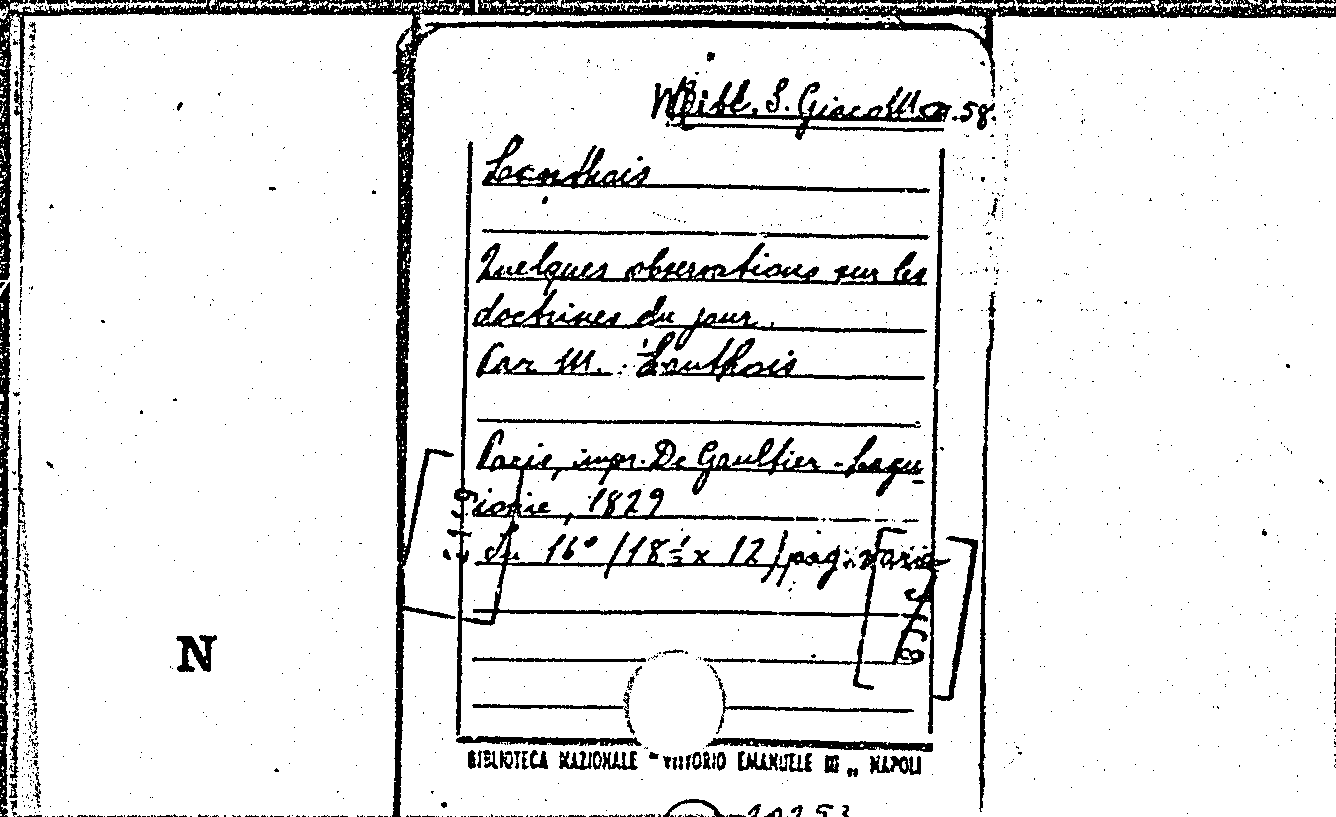 Bibl. S. Giacomo 58.
Lanthois
Quelques observations sur les
doctrines du jour.
Par M. Lanthois
Paris, impr. De Gaultier-Lagu-
ionie, 1829
In 16° (18½ x 12) pag. varie
N
BIBLIOTECA NAZIONALE "VITTORIO EMANUELE III" NAPOLI